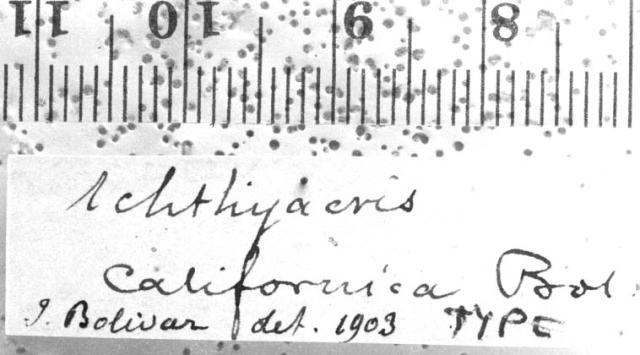 11 10 9 8
Ichthyacris
Californica Bol.
I. Bolivar det. 1903 TYPE